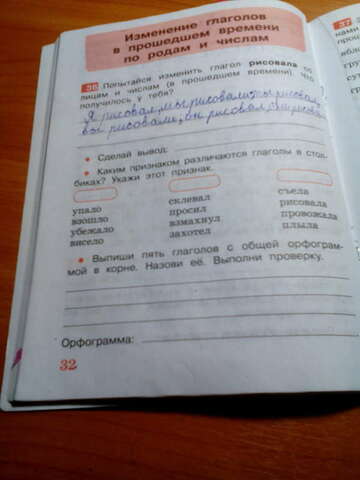 Изменение глаголов
в прошедшем времени
по родам и числам
36 Попытайся изменить глагол рисовала по
лицам и числам (в прошедшем времени). Что
получилось у тебя?
Я рисовал, мы рисовали, ты рисовал,
вы рисовали, он рисовал,
• Сделай вывод:
• Каким признаком различаются глаголы в стол-
биках? Укажи этот признак.
упало склевал съела
взошло просил рисовала
убежало взмахнул провожала
висело захотел плыла
• Выпиши пять глаголов с общей орфограм-
мой в корне. Назови её. Выполни проверку.
Орфограмма:
32
37